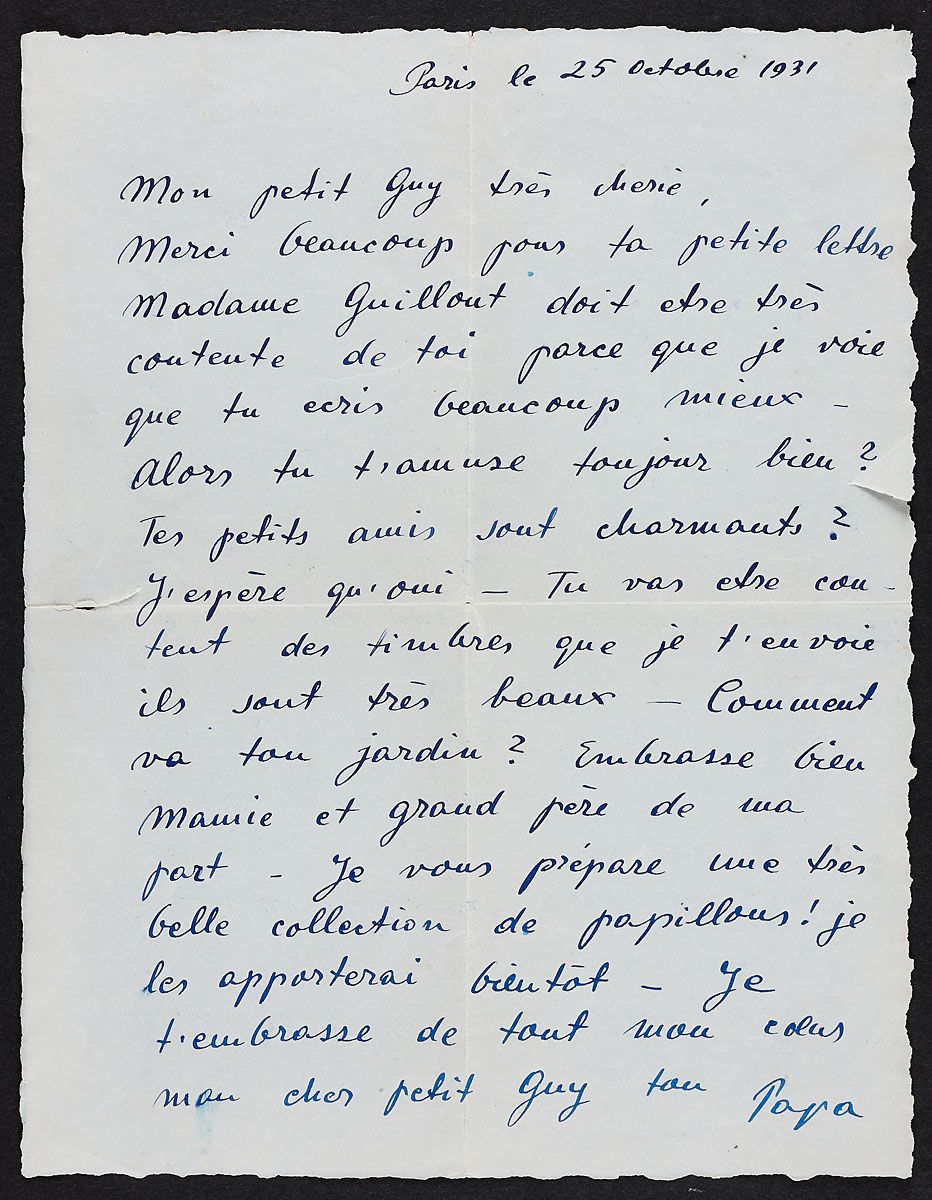 Paris le 25 Octobre 1931
Mon petit Guy très cherie,
Merci beaucoup pour ta petite lettre
Madame Guillout doit etre très
contente de toi parce que je voie
que tu ecris beaucoup mieux –
Alors tu t'amuse toujour bien ?
Tes petits amis sont charmants ?
J'espère qu'oui – Tu vas etre con-
tent des timbres que je t'envoie
ils sont très beaux – Comment
va ton jardin ? Embrasse bien
Mamie et grand père de ma
part – Je vous prépare une très
belle collection de papillons ! je
les apporterai bientôt – Je
t'embrasse de tout mon cœur
mon cher petit Guy ton Papa